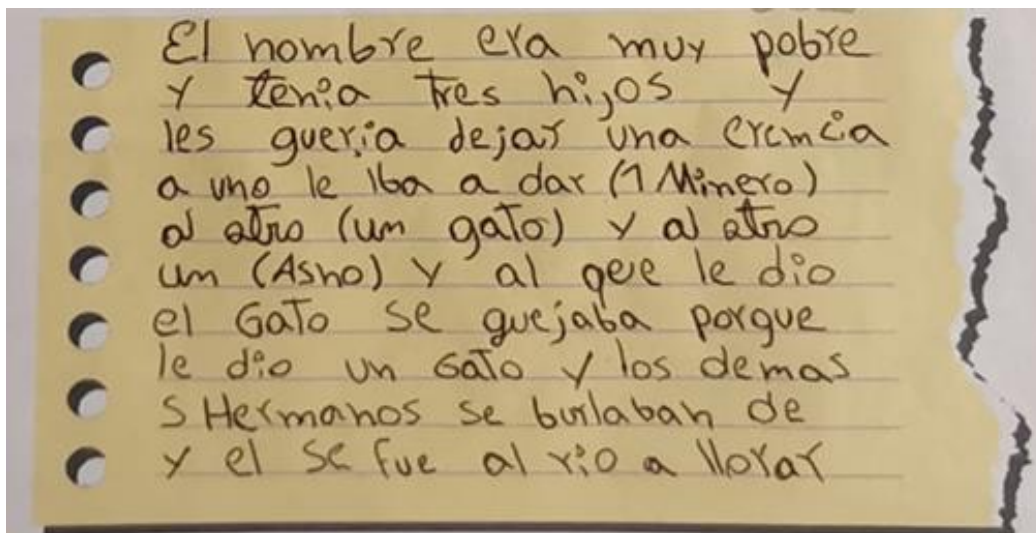 El hombre era muy pobre
y tenia tres hijos y
les queria dejar una erencia
a uno le iba a dar (1 Minero)
al otro (un gato) y al otro
un (Asno) y al que le dio
el Gato se quejaba porque
le dio un Gato y los demas
S Hermanos se burlaban de
y el se fue al rio a llorar